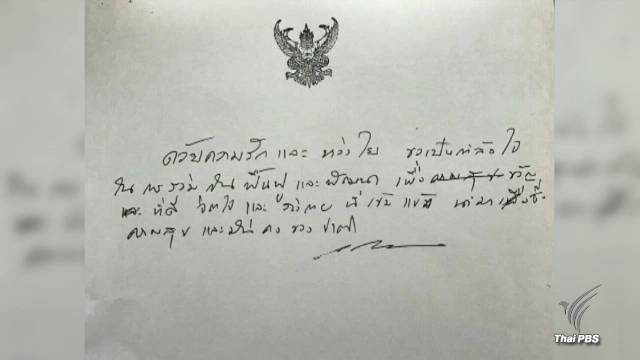 ด้วยความรัก และ ห่วงใย ขอเป็นกำลังใจ
ในการร่วมกันฟื้นฟู และพัฒนา เพื่อ ขวัญ
และ ที่ดี จิตใจ และ ร่างกาย ที่เข้มแข็ง นำมา ซึ่ง
ความสุข และมั่นคง ของ ชาติ
Thai PBS